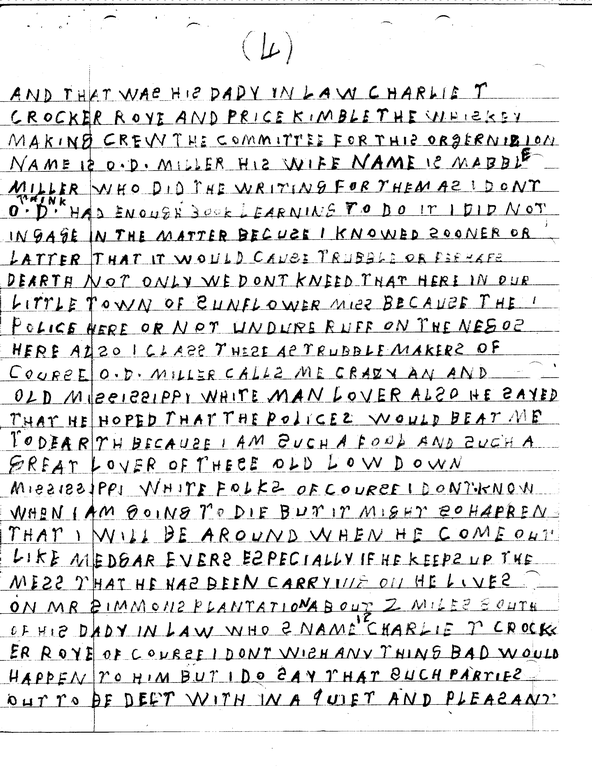 (4)
AND THAT WAS HIS DADY IN LAW CHARLIE T
CROCKER ROYE AND PRICE KIMBLE THE WHISKEY
MAKING CREW THE COMMITTEE FOR THIS ORGERNIZION
NAME IS O.D. MILLER HIS WIFE NAME IS MABBLE
MILLER WHO DID THE WRITING FOR THEM AS I DONT
THINK
O.D. HAD ENOUGH BOOK LEARNING TO DO IT I DID NOT
INGAGE IN THE MATTER BECUSE I KNOWED SOONER OR
LATTER THAT IT WOULD CAUSE TRUBBLE OR
DEARTH NOT ONLY WE DONT KNEED THAT HERE IN OUR
LITTLE TOWN OF SUNFLOWER MISS BECAUSE THE
POLICE HERE OR NOT UNDURE RUFF ON THE NEGOS
HERE ALSO I CLASS THESE AS TRUBBLE MAKERS OF
COURSE O.D. MILLER CALLS ME CRAZY AN AND
OLD MISSISSIPPI WHITE MAN LOVER ALSO HE SAYED
THAT HE HOPED THAT THE POLICES WOULD BEAT ME
TO DEARTH BECAUSE I AM SUCH A FOOL AND SUCH A
GREAT LOVER OF THESE OLD LOW DOWN
MISSISSIPPI WHITE FOLKS OF COURSE I DONT KNOW
WHEN I AM GOING TO DIE BUT IT MIGHT SO HAPPEN
THAT I WILL BE AROUND WHEN HE COME OUT
LIKE MEDGAR EVERS ESPECIALLY IF HE KEEPS UP THE
MESS THAT HE HAS BEEN CARRYING ON HE LIVES
ON MR SIMMONS PLANTATION ABOUT 2 MILES SOUTH
OF HIS DADY IN LAW WHO S NAME IS CHARLIE T CROCK
ER ROYE OF COURSE I DONT WISH ANY THING BAD WOULD
HAPPEN TO HIM BUT I DO SAY THAT SUCH PARTIES
OUT TO BE DELT WITH IN A QUIET AND PLEASANT